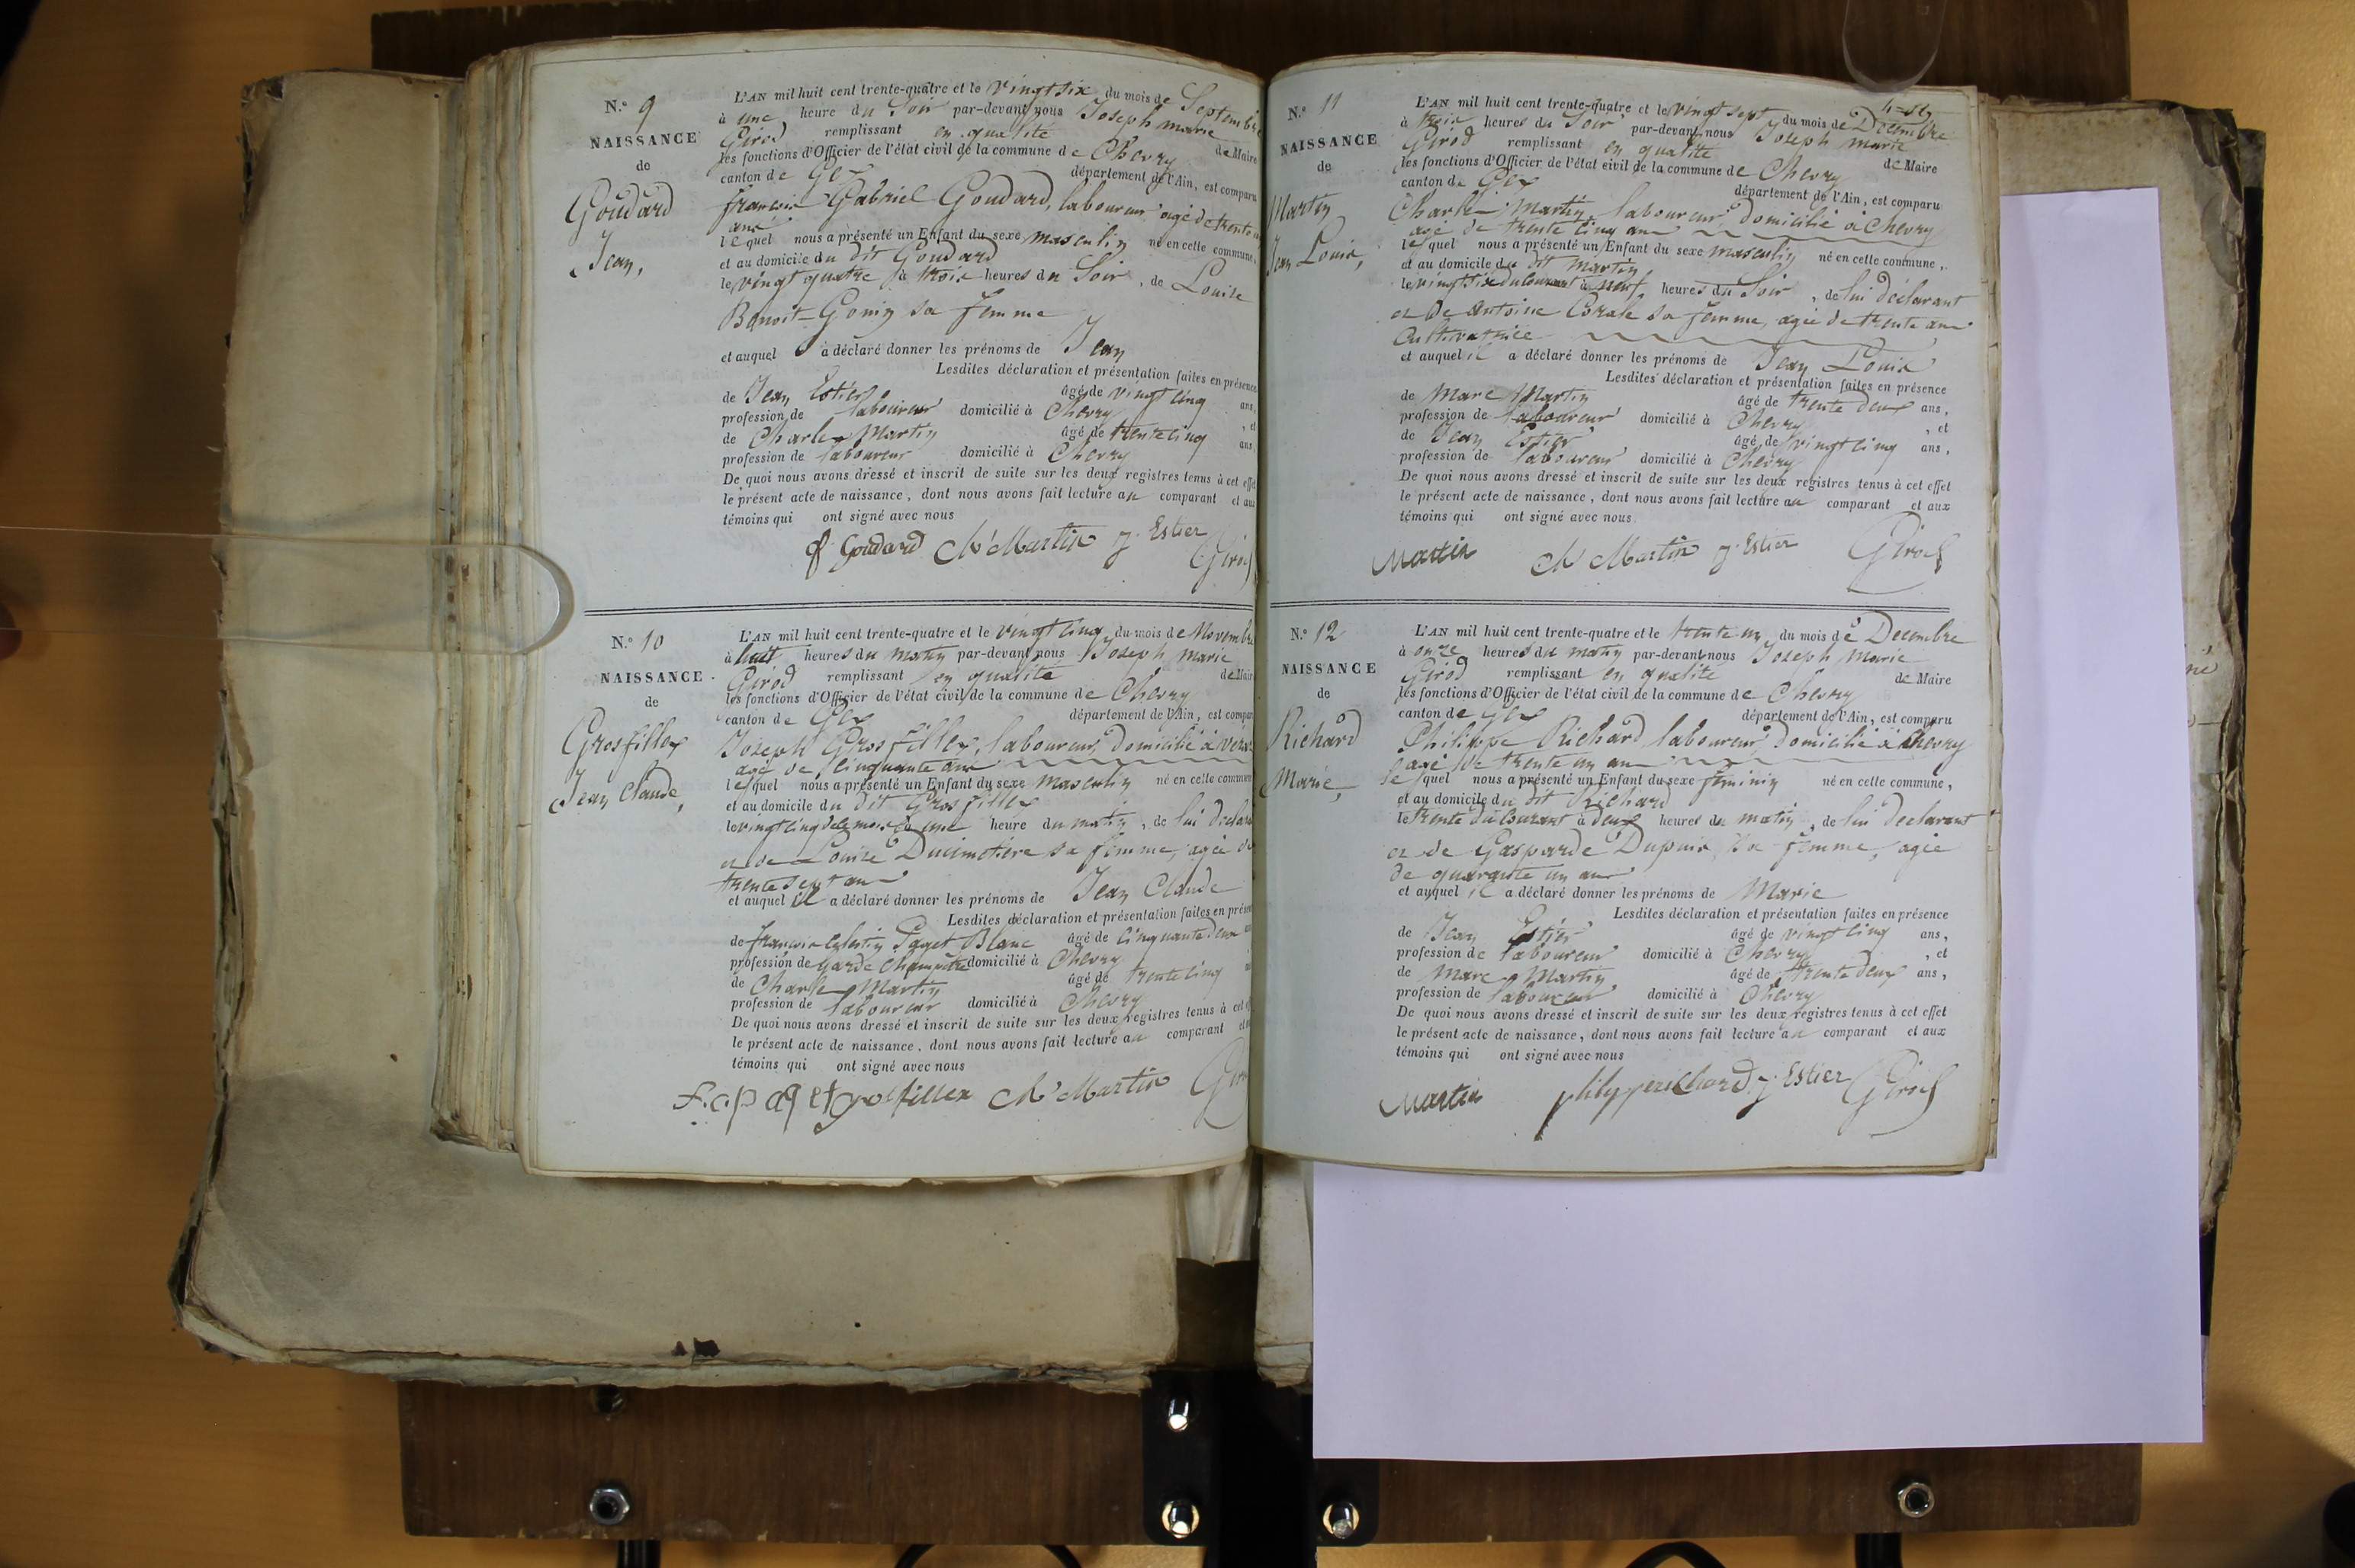 N.° 9
NAISSANCE
de
Goudard
Jean,
L'AN mil huit cent trente-quatre et le vingt six du mois de Septembre
à une heure du Soir par-devant nous Joseph marie
Girod remplissant en qualité de Maire
les fonctions d'Officier de l'état civil de la commune de Chevry
canton de Gex département de l'Ain, est comparu
françois Gabriel Goudard, laboureur agé de trente
ans
lequel nous a présenté un Enfant du sexe masculin né en cette commune,
et au domicile du dit Goudard
le vingt quatre à trois heures du Soir, de Louise
Benoit-Gonin sa femme
et auquel a déclaré donner les prénoms de Jean
Lesdites déclaration et présentation faites en présence
de Jean Estier âgé de vingt cinq ans,
profession de laboureur domicilié à Chevry, et
de Charles Martin âgé de trente cinq ans,
profession de laboureur domicilié à Chevry
De quoi nous avons dressé et inscrit de suite sur les deux registres tenus à cet effet
le présent acte de naissance, dont nous avons fait lecture au comparant et aux
témoins qui ont signé avec nous
f Goudard Ch Martin j. Estier
Girod
N.° 10
NAISSANCE
de
Grosfillex
Jean Claude,
L'AN mil huit cent trente-quatre et le vingt cinq du mois de Novembre
à huit heures du matin par-devant nous Joseph marie
Girod remplissant en qualité de Maire
les fonctions d'Officier de l'état civil de la commune de Chevry
canton de Gex département de l'Ain, est comparu
Joseph Grosfillex, laboureur, domicilié à
agé de cinquante ans
lequel nous a présenté un Enfant du sexe masculin né en cette commune
et au domicile du dit Grosfillex
le vingt cinq de ce mois à une heure du matin, de lui déclarant
et de Louise Ducimetière sa femme, agée de
trente sept ans
et auquel il a déclaré donner les prénoms de Jean Claude
Lesdites déclaration et présentation faites en présence
de françois Celestin Paget Blanc âgé de cinquante deux
profession de garde champêtre domicilié à Chevry
de Charles Martin âgé de trente cinq
profession de laboureur domicilié à Chevry
De quoi nous avons dressé et inscrit de suite sur les deux registres tenus à cet
le présent acte de naissance, dont nous avons fait lecture au comparant et
témoins qui ont signé avec nous
f. c. paget grosfillex Ch Martin Girod
N.° 11
NAISSANCE
de
Martin
Jean Louis,
L'AN mil huit cent trente-quatre et le vingt sept du mois de Décembre
à trois heures du Soir par-devant nous Joseph marie
Girod remplissant en qualité de Maire
les fonctions d'Officier de l'état civil de la commune de Chevry
canton de Gex département de l'Ain, est comparu
Charles Martin, laboureur domicilié à Chevry
agé de trente cinq ans
lequel nous a présenté un Enfant du sexe masculin né en cette commune,
et au domicile du dit Martin
le vingt six du courant à neuf heures du Soir, de lui déclarant
et de Antoine sa femme, agée de trente ans
Cultivatrice
et auquel il a déclaré donner les prénoms de Jean Louis
Lesdites déclaration et présentation faites en présence
de Marc Martin âgé de trente deux ans,
profession de laboureur domicilié à Chevry, et
de Jean Estier âgé de vingt cinq ans,
profession de laboureur domicilié à Chevry
De quoi nous avons dressé et inscrit de suite sur les deux registres tenus à cet effet
le présent acte de naissance, dont nous avons fait lecture au comparant et aux
témoins qui ont signé avec nous
Martin Ch Martin j. Estier Girod
N.° 12
NAISSANCE
de
Richard
Marie,
L'AN mil huit cent trente-quatre et le trente un du mois de Decembre
à onze heures du matin par-devant nous Joseph Marie
Girod remplissant en qualité de Maire
les fonctions d'Officier de l'état civil de la commune de Chevry
canton de Gex département de l'Ain, est comparu
Philippe Richard laboureur, domicilié à Chevry
agé de trente un ans
lequel nous a présenté un Enfant du sexe féminin né en cette commune,
et au domicile du dit Richard
le trente du courant à deux heures du matin, de lui declarant
et de Gasparde Dupuis, sa femme, agée
de quarante un ans
et auquel il a déclaré donner les prénoms de Marie
Lesdites déclaration et présentation faites en présence
de Jean Estier âgé de vingt cinq ans,
profession de laboureur domicilié à Chevry, et
de Marc Martin âgé de trente deux ans,
profession de laboureur domicilié à Chevry
De quoi nous avons dressé et inscrit de suite sur les deux registres tenus à cet effet
le présent acte de naissance, dont nous avons fait lecture au comparant et aux
témoins qui ont signé avec nous
Martin philyperichard j. Estier Girod